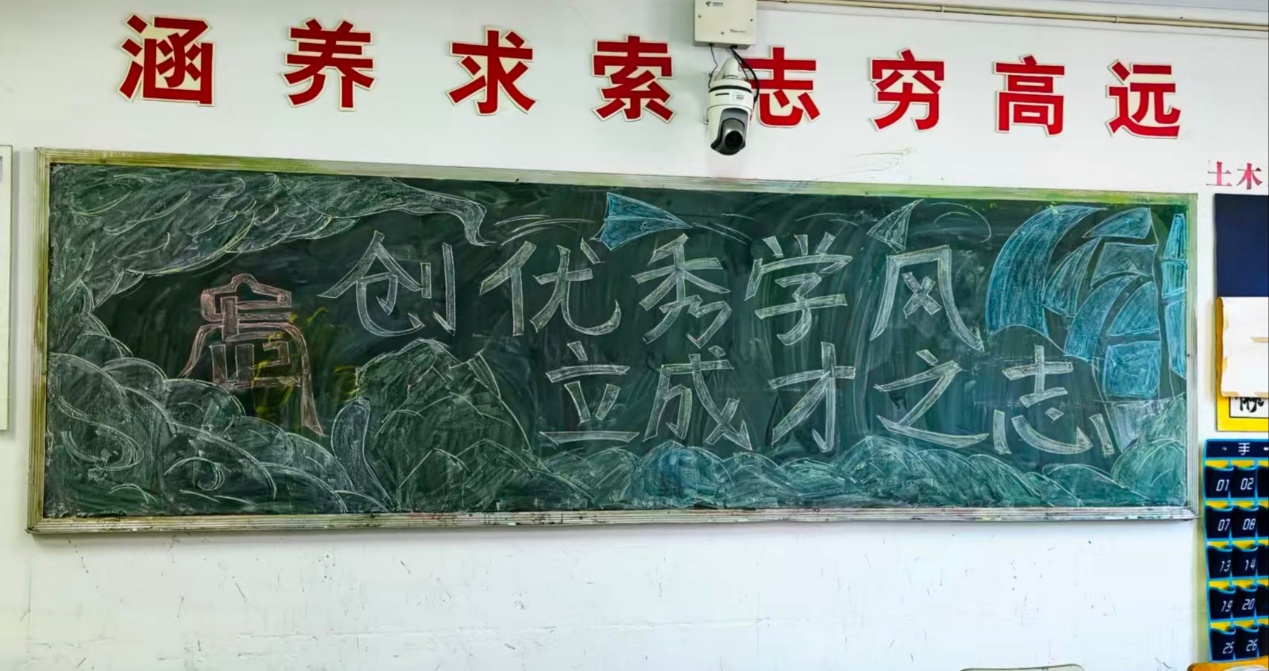 涵养求索志穷高远
土木
创优秀学风
立成才之志
手
01 02
07 08
13 14
19 20
25 26